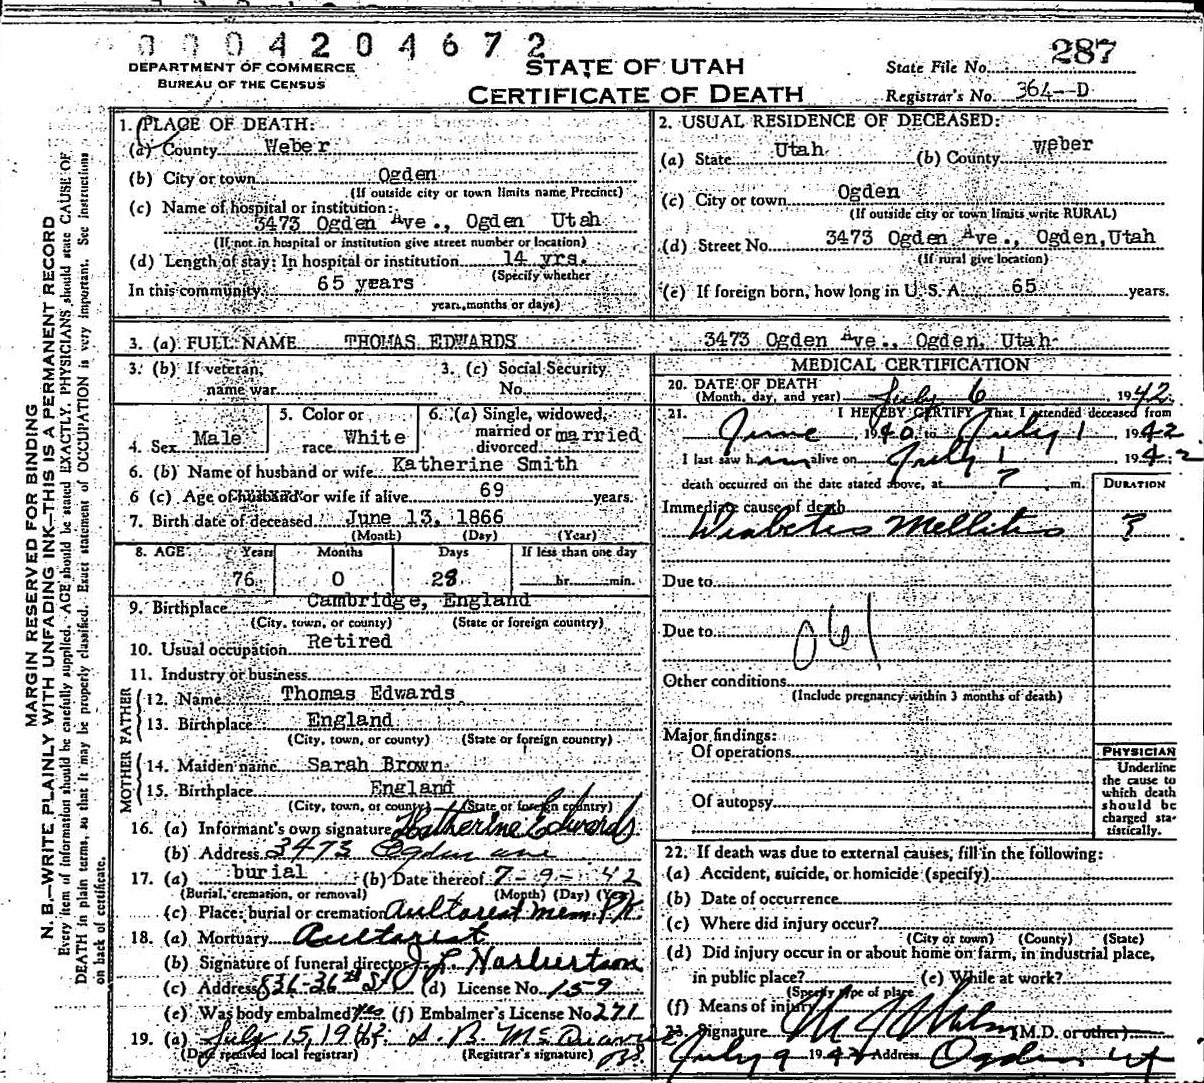 0004204672
DEPARTMENT OF COMMERCE
BUREAU OF THE CENSUS
STATE OF UTAH
CERTIFICATE OF DEATH
State File No. 287
Registrar's No. 364--D
MARGIN RESERVED FOR BINDING
N. B.—WRITE PLAINLY WITH UNFADING INK—THIS IS A PERMANENT RECORD
Every item of information should be carefully supplied. AGE should be stated EXACTLY. PHYSICIANS should state CAUSE OF
DEATH in plain terms, so that it may be properly classified. Exact statement of OCCUPATION is very important. See instructions
on back of certificate.
1. PLACE OF DEATH:
(a) County Weber
(b) City or town Ogden
(If outside city or town limits name Precinct)
(c) Name of hospital or institution:
3473 Ogden Ave., Ogden Utah
(If not in hospital or institution give street number or location)
(d) Length of stay: In hospital or institution 14 yrs.
(Specify whether
In this community 65 years
years, months or days)
2. USUAL RESIDENCE OF DECEASED:
(a) State Utah (b) County Weber
(c) City or town Ogden
(If outside city or town limits write RURAL)
(d) Street No. 3473 Ogden Ave., Ogden, Utah
(If rural give location)
(e) If foreign born, how long in U. S. A. 65 years.
3. (a) FULL NAME THOMAS EDWARDS 3473 Ogden Ave., Ogden, Utah
3. (b) If veteran, name war 3. (c) Social Security No.
4. Sex Male 5. Color or race White 6. (a) Single, widowed, married or divorced married
6. (b) Name of husband or wife Katherine Smith
6 (c) Age of husband or wife if alive 69 years.
7. Birth date of deceased June 13, 1866
(Month) (Day) (Year)
8. AGE Years Months Days If less than one day
76 0 28 hr. min.
9. Birthplace Cambridge, England
(City, town, or county) (State or foreign country)
10. Usual occupation Retired
11. Industry or business
FATHER
12. Name Thomas Edwards
13. Birthplace England
(City, town, or county) (State or foreign country)
MOTHER
14. Maiden name Sarah Brown
15. Birthplace England
(City, town, or county) (State or foreign country)
16. (a) Informant's own signature Katherine Edwards
(b) Address 3473 Ogden ave
17. (a) burial (b) Date thereof 7-9-42
(Burial, cremation, or removal) (Month) (Day) (Year)
(c) Place; burial or cremation Aultorest Mem. Pk.
18. (a) Mortuary Aultorest
(b) Signature of funeral director J. L. Harbertson
(c) Address 836-36th St (d) License No. 159
(e) Was body embalmed yes (f) Embalmer's License No. 271
19. (a) July 15, 1942
(Day received local registrar) (Registrar's signature)
MEDICAL CERTIFICATION
20. DATE OF DEATH
(Month, day, and year) July 6 1942.
21. I HEREBY CERTIFY That I attended deceased from
June, 1940 to July 1, 1942
I last saw him alive on July 1 1942
death occurred on the date stated above, at ? m.
DURATION
Immediate cause of death
Diabetis Mellitis ?
Due to
Due to
061
Other conditions
(Include pregnancy within 3 months of death)
Major findings:
Of operations
Of autopsy
PHYSICIAN
Underline
the cause to
which death
should be
charged sta-
tistically.
22. If death was due to external causes, fill in the following:
(a) Accident, suicide, or homicide (specify)
(b) Date of occurrence
(c) Where did injury occur?
(City or town) (County) (State)
(d) Did injury occur in or about home on farm, in industrial place,
in public place? (e) While at work?
(Specify type of place
(f) Means of injury
23. Signature (M.D. or other)
July 9 1942 Address Ogden Ut